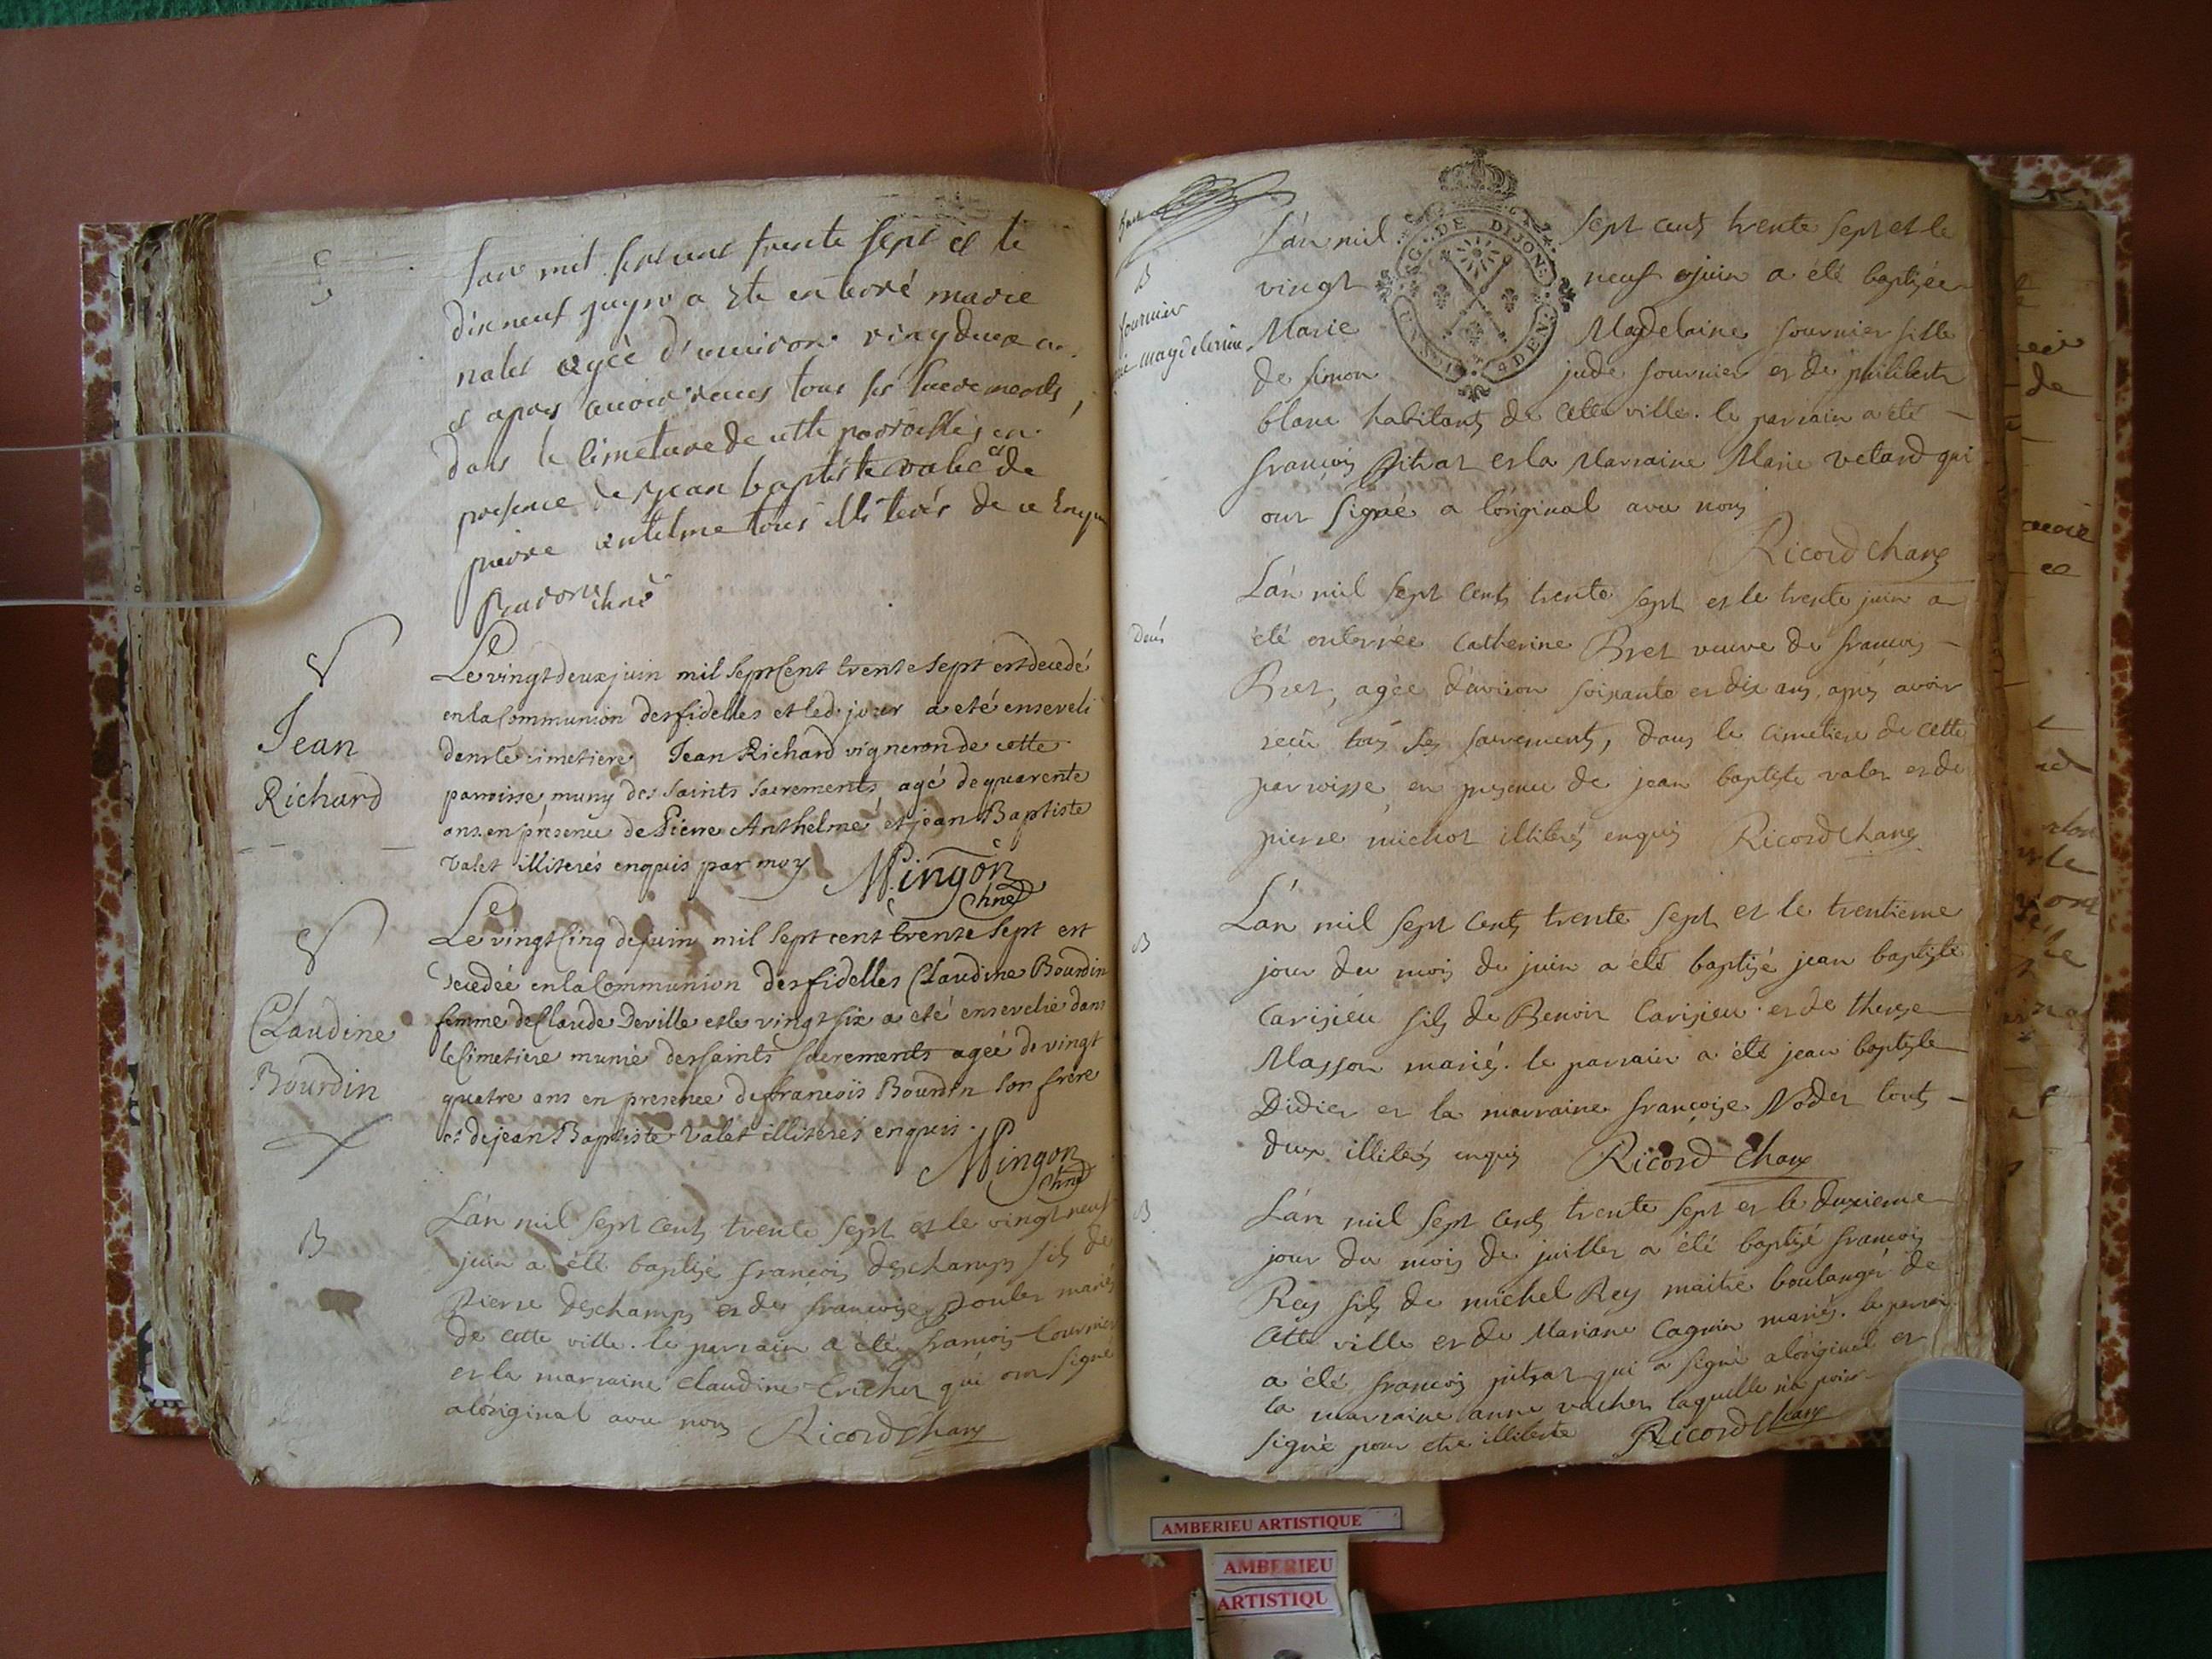 dixneuf juin a ete enterré marie
valet agée d'environ vingdeux ans
et apres avoir receu tous ses sacrements,
dans le cimetiere de cette parroisse, en
presence de jean baptiste valet et de
pierre antelme tous illiterés de ce enquis
V
Jean
Richard
Le vingt deux juin mil sept Cent trente sept est decedé
en la Communion des fidelles et led. jour a eté enseveli
dans le cimetiere Jean Richard vigneron de cette
parroisse muny des saints sacrements agé de quarente
ans en presence de Pierre Anthelme et jean Baptiste
valet illiterés enquis par moy Mingon
chne
V
Claudine
Bourdin
Le vingt Cinq de juin mil sept cent trente sept est
decedée en la Communion des fidelles Claudine Bourdin
femme de Claude Deville et le vingt six a eté ensevelie dans
le Cimetiere munie des saints sacrements ageé de vingt
quatre ans en presence de francois Bourdin son frere
et de jean Baptiste valet illiterés enquis.
Mingon
chne
B
L'an mil sept cents trente sept et le vingt neuf
juin a été baptisé françois deschamps fils de
Pierre deschamps et de francoise poulet mariés
de cette ville. le parrain a été francois
et la marraine claudine qui ont signé
a l'original avec nous Ricord chane
B
fournier
magdeleine
L'an mil sept cents trente sept et le
vingt neuf juin a été baptisée
Marie Magdelaine fournier fille
de simon jude fournier et de philiberte
blanc habitants de cette ville. le parrain a été
françois Pitrat et la Marraine Marie velard qui
ont signé a l'original avec nous
Ricord chane
L'an mil sept cents trente sept et le trente juin a
été enterrée Catherine Bret veuve de francois
Bret, agée d'environ soixante et dix ans, après avoir
reçu tous ses sacrements, dans le cimetiere de cette
parroisse en presence de jean baptiste valet et de
pierre michot illiterés enquis Ricord chane
B
L'an mil sept cents trente sept et le trentieme
jour du mois de juin a été baptisé jean baptiste
Carisieu fils de Benoit Carisieu et de therese
Masson mariés. le parrain a été jean baptiste
Didier et la marraine françoise Nodet touts
deux illiterés enquis Ricord chane
B
L'an mil sept cents trente sept et le deuxieme
jour du mois de juillet a été baptisé francois
Rey fils de michel Rey maitre boulanger de
cette ville et de Mariane Cagnin mariés. le parrain
a été francois pitrat qui a signé a l'original et
la marraine anne vacher laquelle n'a point
signé pour etre illiterée Ricord chane
DE DIJON
AMBERIEU ARTISTIQUE
AMBERIEU
ARTISTIQU